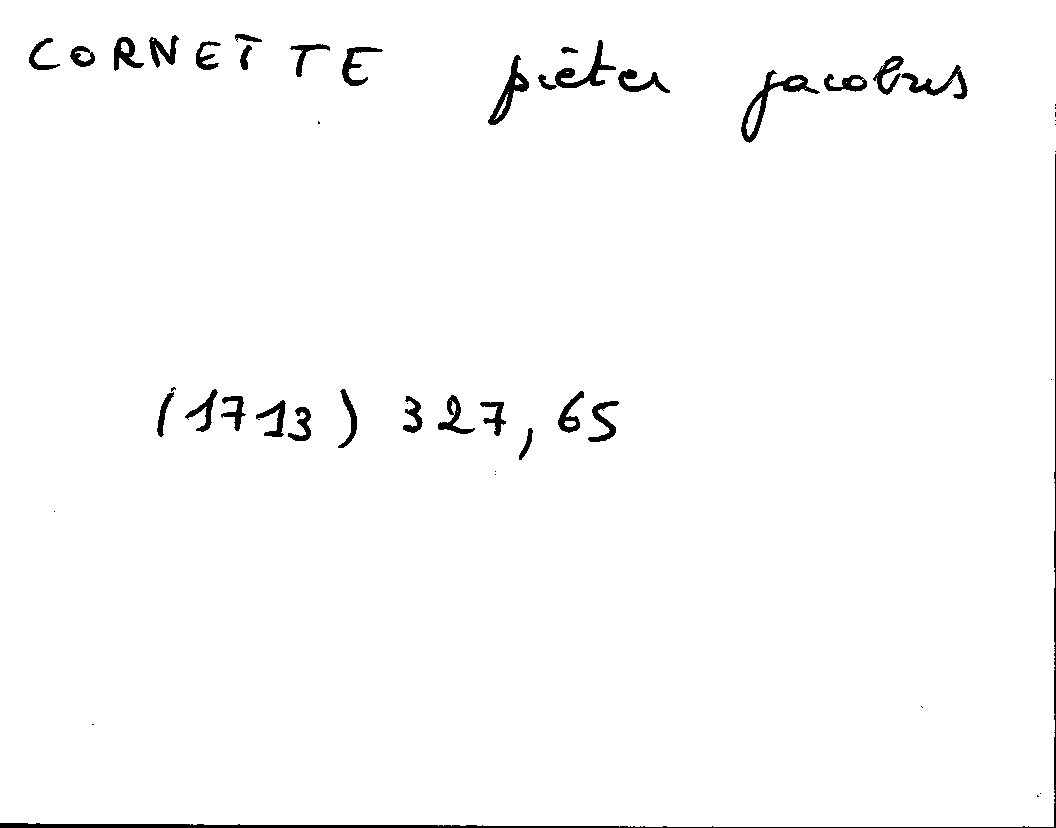 CORNETTE pieter jacobus
(1713) 327, 65